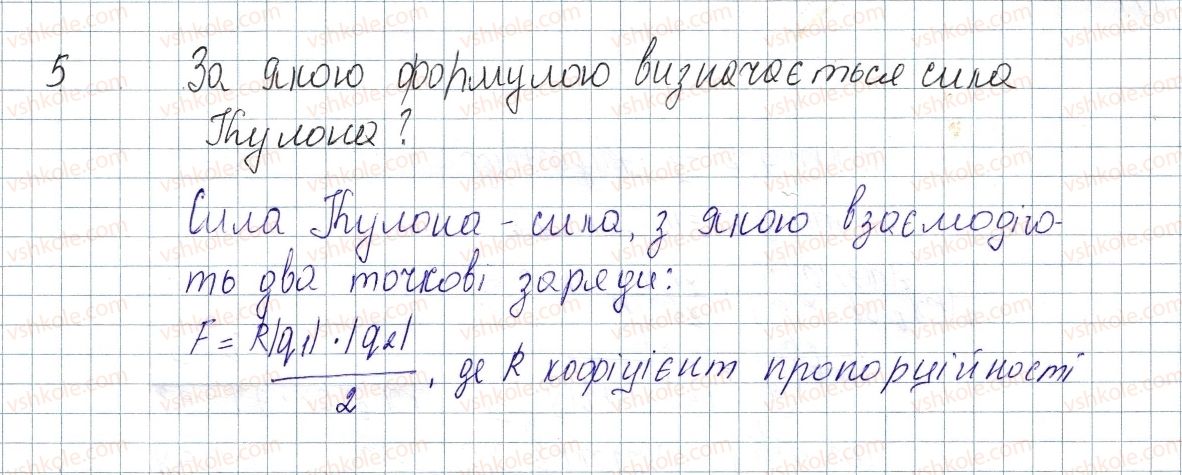 5 За якою формулою визначається сила
Кулона?
Сила Кулона - сила, з якою взаємодію-
ть два точкові заряди:
F = k|q1| · |q2|
2 , де k кофіцієнт пропорційності